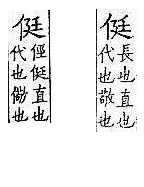 侹
長也直也
代也敬也
侹
俓侹直也
代也也